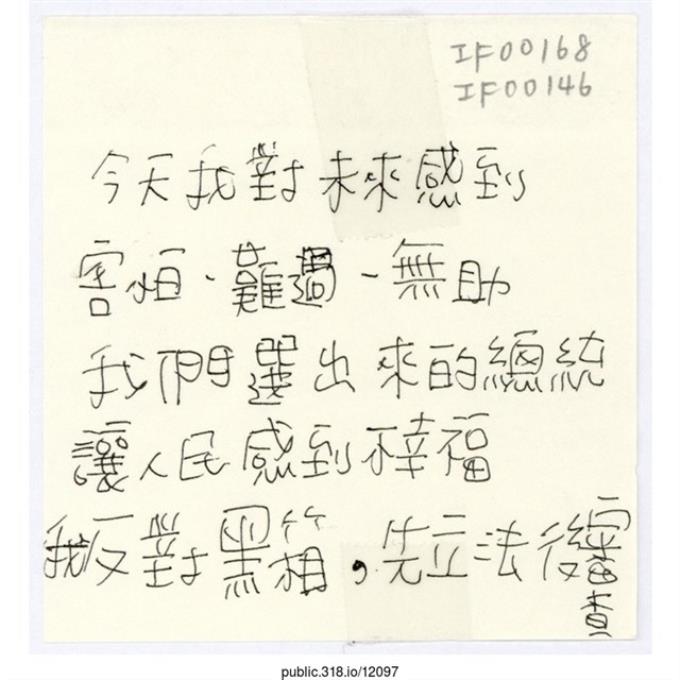 IF00168
IF00146
今天我對未來感到
害怕、難過、無助
我們選出來的總統
讓人民感到不幸福
我反對黑箱，先立法後審查
public.318.io/12097